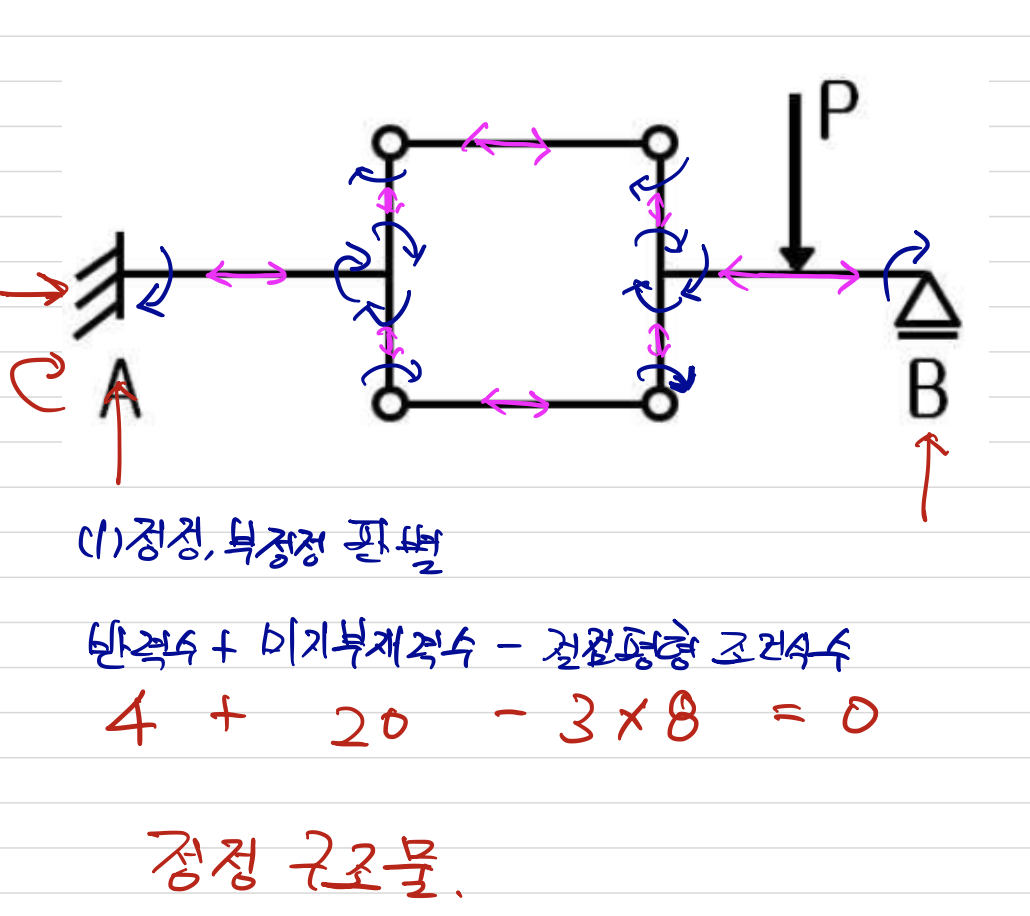 P
A
B
(1) 정정, 부정정 판별
반력수 + 미지부재력수 - 절점평형 조건식수
4 + 20 - 3×8 = 0
정정 구조물.